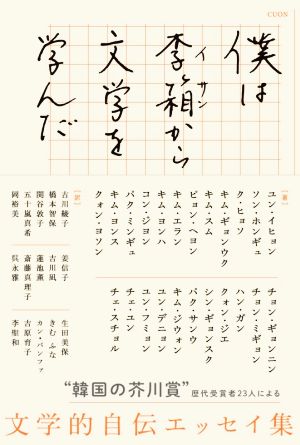 CUON
僕は
李箱から
イ サン
文学を
学んだ
［著］
ユン・イヒョン
ソン・ホンギュ
ク・ヒョソ
キム・ギョンウク
キム・スム
ピョン・ヘヨン
キム・エラン
キム・ヨンハ
コン・ジヨン
パク・ミンギュ
キム・ヨンス
クォン・ヨソン
チョン・ギョンニン
チョン・ミギョン
ハン・ガン
クォン・ジエ
シン・ギョンスク
パク・サンウ
キム・ジウォン
ユン・デニョン
ユン・フミョン
チェ・ユン
チェ・スチョル
［訳］
古川綾子
橋本智保
関谷敦子
五十嵐真希
岡裕美
姜信子
吉川凪
蓮池薫
斎藤真理子
呉永雅
生田美保
きむ ふな
カン・バンファ
吉原育子
李聖和
“韓国の芥川賞”歴代受賞者23人による
文学的自伝エッセイ集